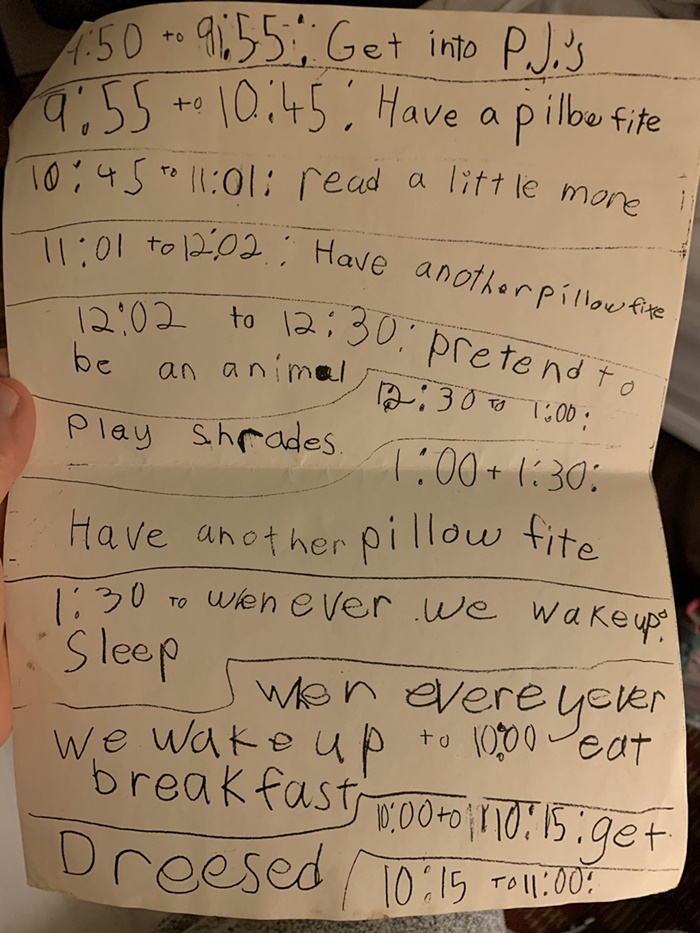 :50 to 9:55: Get into P.J.'s
9:55 to 10:45: Have a pilbw fite
10:45 to 11:01: read a little more
11:01 to 12:02: Have another pillow fite
12:02 to 12:30: pretend to
be an animal
12:30 to 1:00:
Play shrades.
1:00 + 1:30:
Have another pillow fite
1:30 to wenever we wakeup:
Sleep
wen evereyever
we wakeup to 10:00 eat
breakfast
10:00 to 10:15: get
Dreesed
10:15 to 11:00: